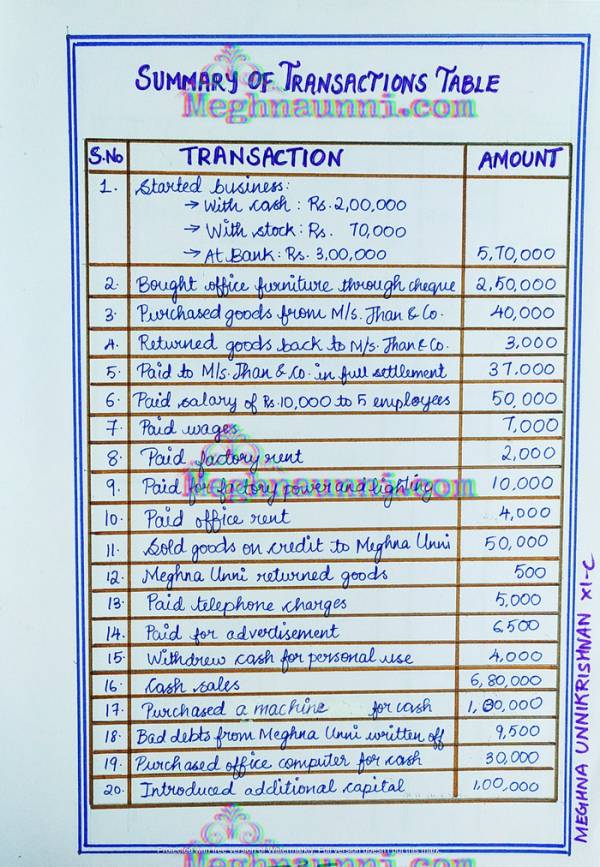 SUMMARY OF TRANSACTIONS TABLE
Meghnaunni.com
S.No TRANSACTION AMOUNT
1. Started business:
→ With cash: Rs. 2,00,000
→ With stock: Rs. 70,000
→ At Bank: Rs. 3,00,000 5,70,000
2. Bought office furniture through cheque 2,50,000
3. Purchased goods from M/s. Jhan & Co. 40,000
4. Returned goods back to M/s. Jhan & Co. 3,000
5. Paid to M/s. Jhan & Co. in full settlement 37.000
6. Paid salary of Rs.10,000 to 5 employees 50,000
7. Paid wages 7,000
8. Paid factory rent 2,000
9. Paid for factory power and lighting 10,000
Meghnaunni.com
10. Paid office rent 4,000
11. Sold goods on credit to Meghna Unni 50,000
12. Meghna Unni returned goods 500
13. Paid telephone charges 5,000
14. Paid for advertisement 6,500
15. Withdrew cash for personal use 4,000
16. Cash sales 6,80,000
17. Purchased a machine for cash 1,00,000
18. Bad debts from Meghna Unni written off 9,500
19. Purchased office computer for cash 30,000
20. Introduced additional capital 1,00,000
MEGHNA UNNIKRISHNAN XI-C
Protected with free version of Watermarkly. Full version doesn't put this mark.